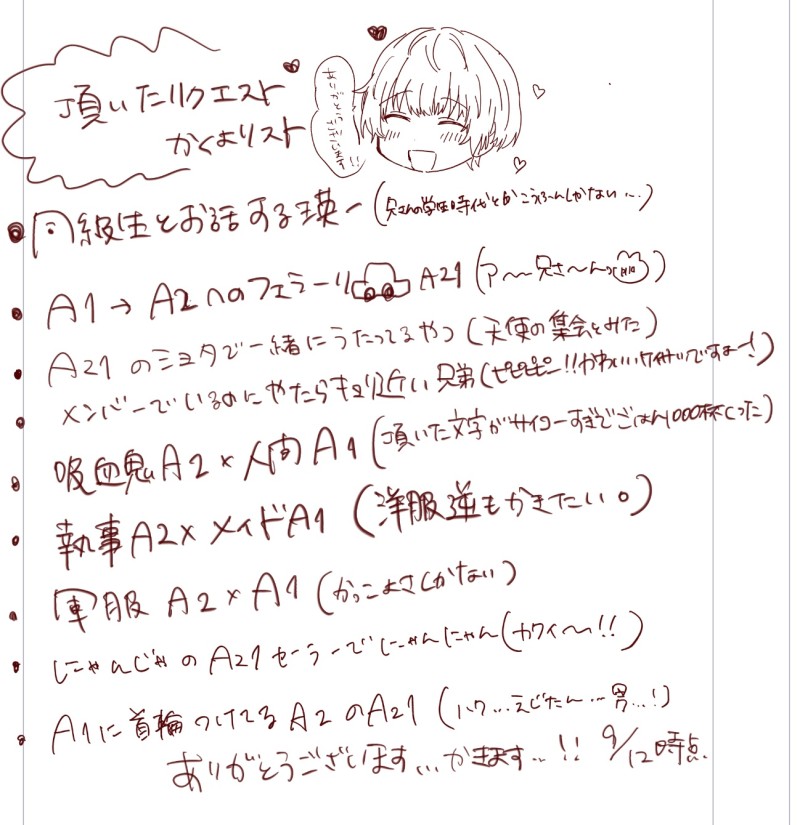 頂いたリクエスト
かくよリスト
ありがとうございます!!
・同級生とお話する瑛一(兄さんの学生時代とかこうふんしかない...)
・A1→A2へのフェラーリ A21(ア〜兄さ〜んって)
・A21のミヨタで一緒にうたってるやつ(天使の集会とみた)
・メンバーでいるのにやたらキョリ近い兄弟(ピピピピー!!かわいいケイサツですよー!)
・吸血鬼A2×人間A1(頂いた文字がサイコーすぎてごはん1000杯くった)
・執事A2×メイドA1(洋服逆もかきたい。)
・軍服 A2×A1(かっこよさしかない)
・にゃんじゃのA21セーラーでにゃんにゃん(カワイ〜!!)
・A1に首輪つけてるA2のA21(ハワ...えじたん...男...!)
ありがとうございます...かきます...!! 9/12時点.